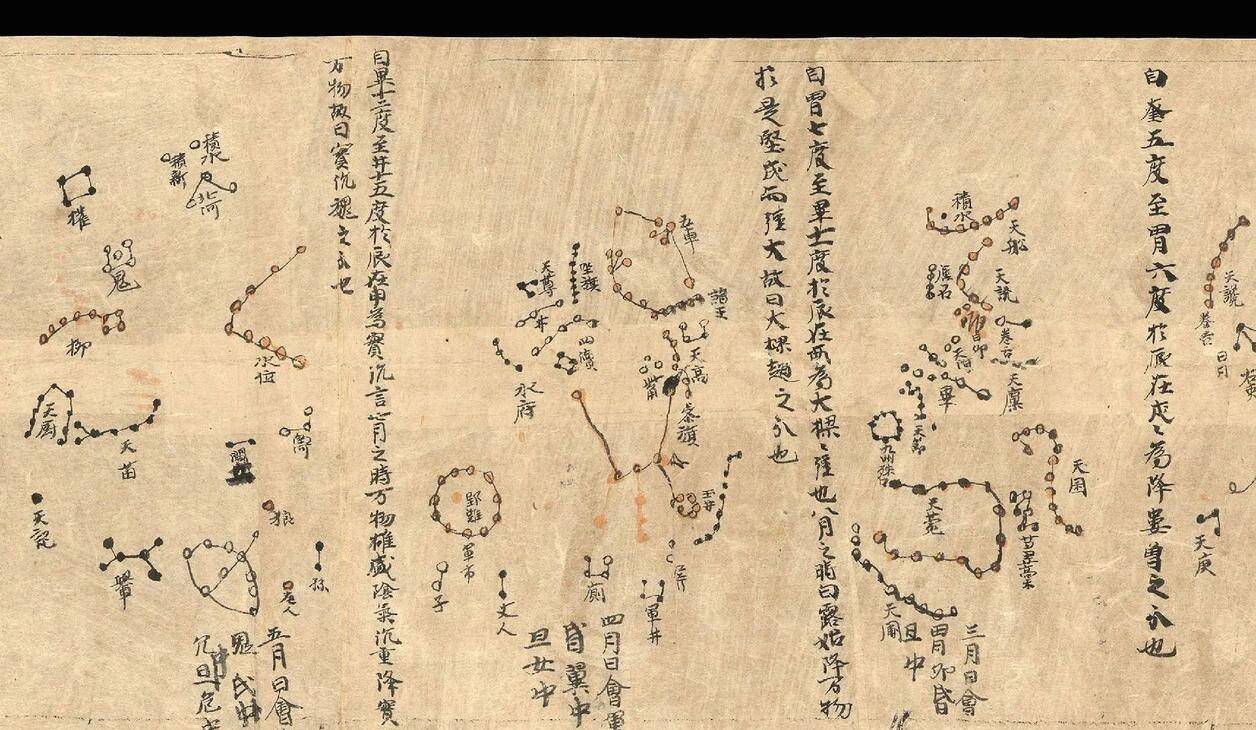 天讒
卷舌
日月
天庾
自奎五度至胃六度於辰在戌〻為降婁魯之分也
積水
天船
天讒
卷舌
昴
天廩
畢
天節
九州殊口
天囷
天菀
芻藁
天園
三月日會
胃昴昏
旦中
自胃七度至畢十一度於辰在酉為大樑〻強也八月之時白露始降万物
於是堅成而強大故曰大樑趙之分也
五車
諸王
天高
坐旗
天尊
井
四瀆
觜
參旗
水府
玉井
野雞
軍市
屏
軍井
廁
丈人
子
四月日會
昏翼中
旦女中
自畢十二度至井十五度於辰在申為實沉言七月之時万物雄盛陰氣沉重降實
万物故曰實沉魏之分也
積水
積薪
北河
鬼
柳
水位
天苗
闕
狼
孫
老人
天記
五月日會